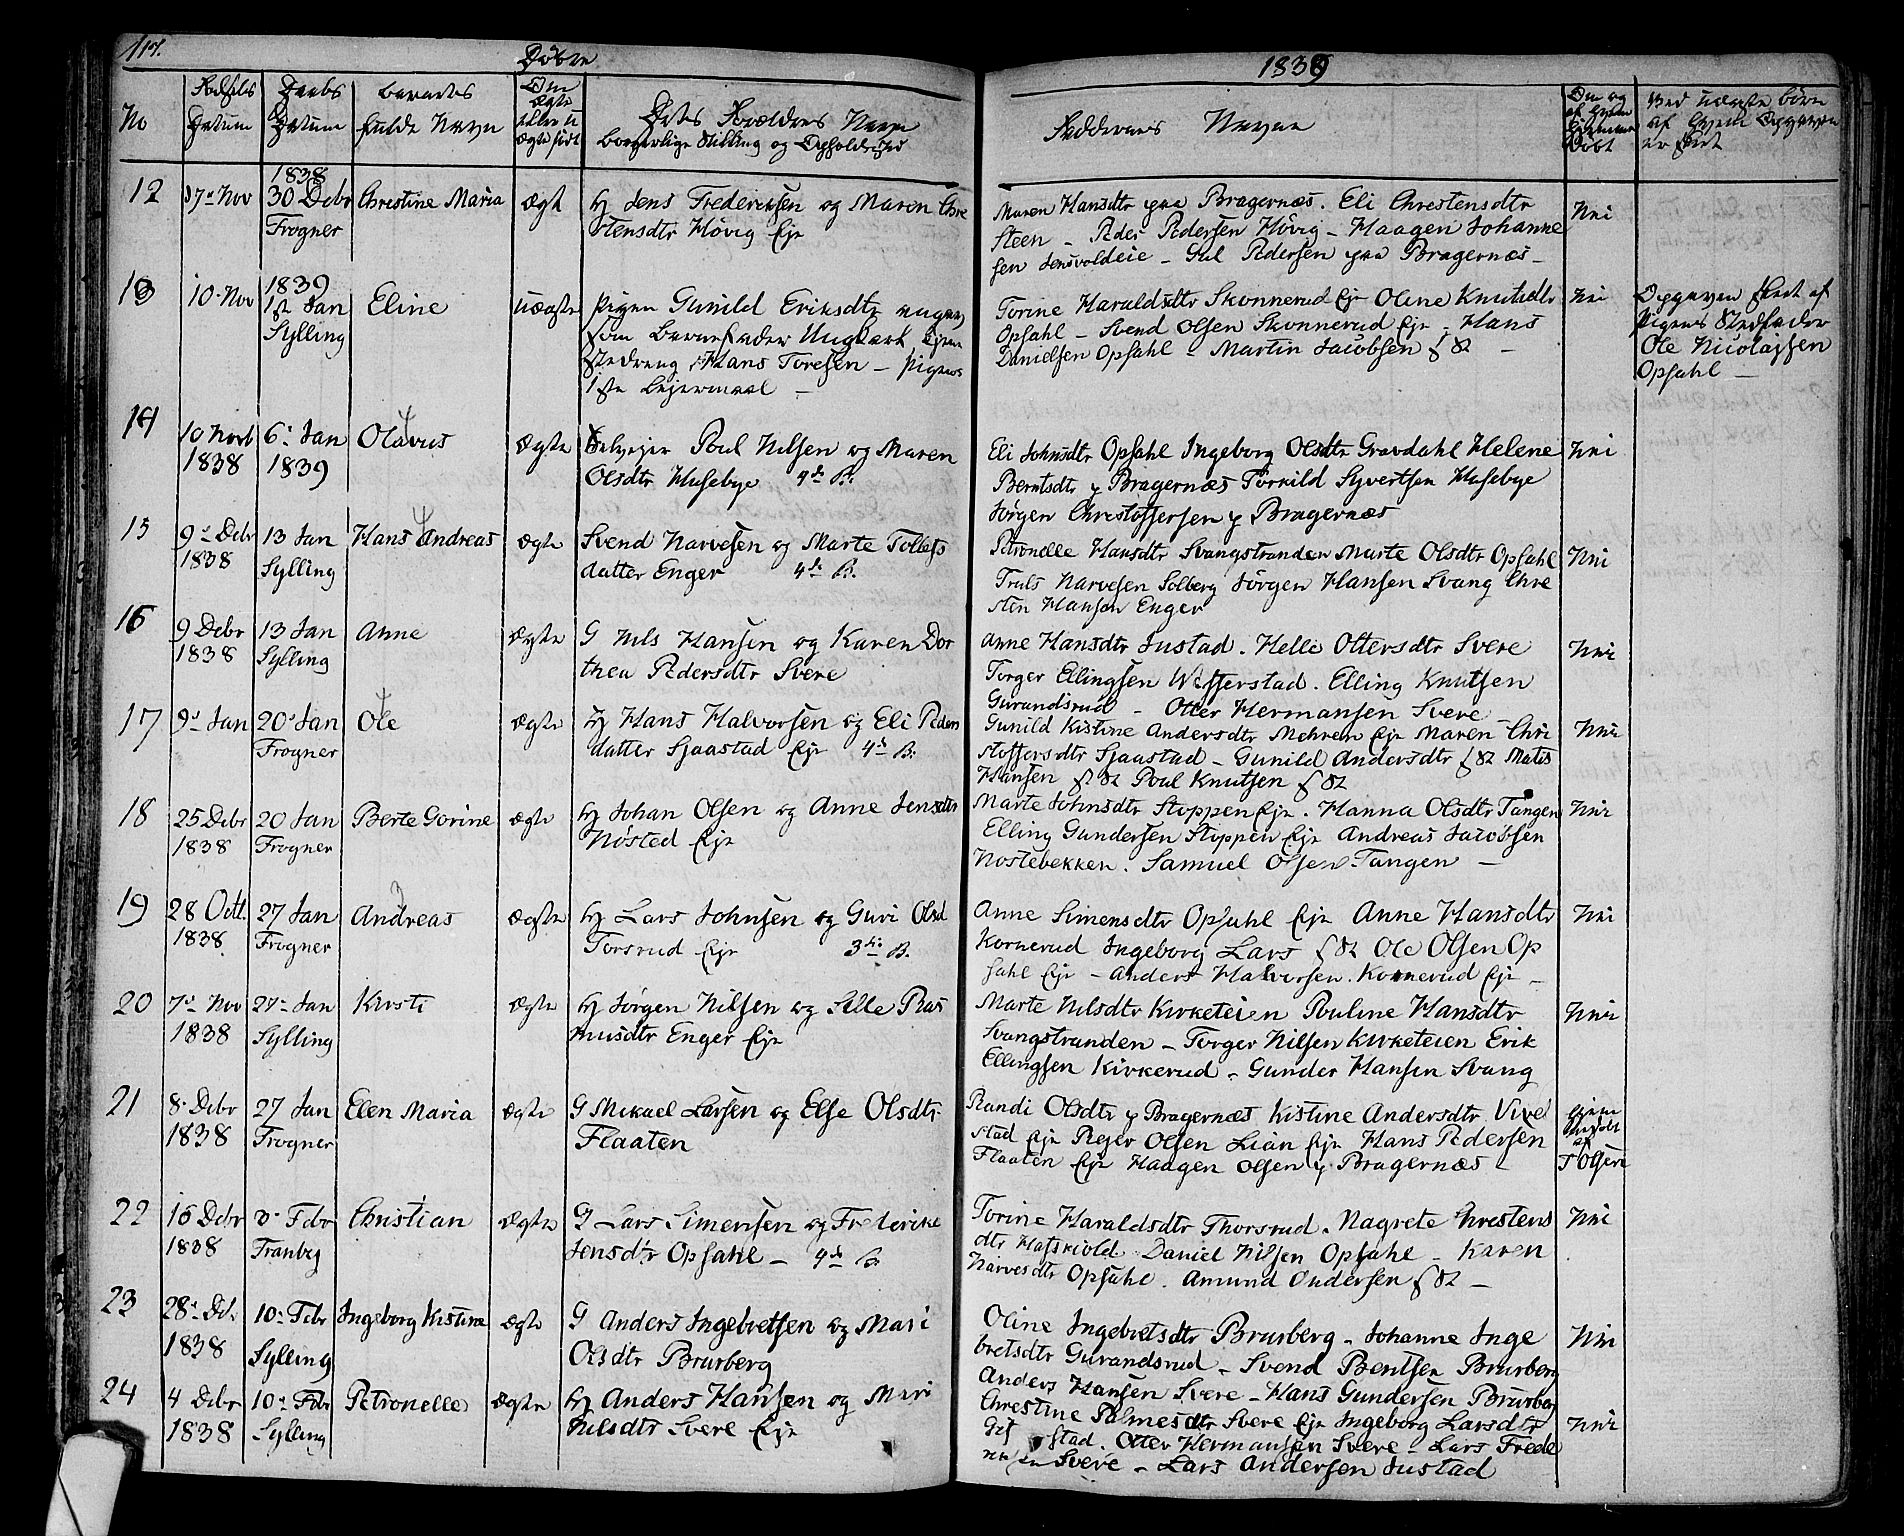 Døbte 1839
No
Fødsels Daabs Barnets
Datum Datum fulde Navn
Om ægte eller uægte født
Dets Forældres Navn
borgerlige Stilling og Opholdssted
Faddernes Navne
Om og af hvem hjemmedøbt
Ved uægte børn af hvem Opgaven er skeet
1838
12 17de Nov 30 Debr Christine Maria ægt Hj Jens Frederiksen og Maren Chre
Frogner stensdtr Høvig Eje
Maren Hansdtr paa Bragernæs. Eli Chrestensdtr Nei
Steen - Peder Pedersen Høvig - Haagen Johanne
sen Jensvoldeie - Gul Pedersen paa Bragernæs -
1839
13 10 Nov 1ste Jan Eline uægte Pigen Gunild Eriksdtr angav
Sylling som Barnefader Ungkarl
Hans Toresen - Pigens
1ste Lejermaal -
Torine Haraldsdtr Skonnerud Eje Oline Knutsdtr Nei
Opsahl - Svend Olsen Skonnerud Eje - Hans
Danielsen Opsahl - Martin Jacobsen
Opgaven skeet af
Pigens Stedfader
Ole Nicolajsen
Opsahl -
14 10 Novb 6te Jan Olavus ægte Selvejer Poul Nilsen og Maren
1838 1839 Olsdtr Husebye 4de B.
Eli Johnsdtr Opsahl Ingeborg Olsdtr Gravdahl Helene Nei
Berntsdtr p Bragernæs Torkild Syvertsen Husebye
Jørgen Christoffersen p Bragernæs
15 9de Debr 13 Jan Hans Andreas ægte Svend Narvesen og Marte Tollefs
1838 Sylling datter Enger 4de B.
Petronelle Hansdtr Svangstranden Marte Olsdtr Opsahl Nei
Truls Narvesen Solberg Jørgen Hansen Svang Chre
sten Hansen Enger
16 9 Debr 13 Jan Anne ægte G Nils Hansen og Karen Dor
1838 Sylling thea Pedersdtr Svere
Anne Hansdtr Justad. Helle Ottersdtr Svere Nei
Torger Ellingsen Wefferstad. Elling Knutsen
Gurandsrud - Otter Hermansen Svere -
17 9de Jan 20de Jan Ole ægte Hj Hans Halvorsen og Eli Peders
Frogner datter Sjaastad Eje 4de B.
Gunild Kistine Andersdtr Mehren Eje Maren Chri Nei
stoffersdtr Sjaastad - Gunild Andersdtr Matis
Hansen Poul Knutsen
18 25 Debr 20 Jan Berte Gorine ægte Hj Johan Olsen og Anne Jensdtr
1838 Frogner Nøsted Eje
Marte Johnsdtr Stoppen Eje. Hanna Olsdtr Tangen Nei
Elling Gundersen Stoppen Eje Andreas Jacobsen
Nostebekken. Samuel Olsen Tangen -
19 28 Octt. 27 Jan Andreas ægte Hj Lars Johnsen og Guri Olsd
1838 Frogner Torsrud Eje 3die B.
Anne Simensdtr Opsahl Eje Anne Hansdtr Nei
Kornerud Ingeborg Lars Ole Olsen Op
sahl Eje - Anders Halvorsen. Kornerud Eje -
20 7de Nov 27de Jan Kirsti ægte Hj Jørgen Nilsen og Sille Ras
1838 Sylling musdtr Enger Eje
Marte Nilsdtr Kirketeien Pauline Hansdtr Nei
Svangstranden - Torger Nilsen Kirketeien Erik
Ellingsen Kirkerud - Gunder Hansen Svang
21 8de Debr 27 Jan Elen Maria ægte G Mikael Larsen og Else Olsdtr
1838 Frogner Flaaten
Randi Olsdtr p Bragernæs Kistine Andersdtr Vivel
stad Eje Peger Olsen Lian Eje Hans Pedersen
Flaaten Eje Haagen Olsen p Bragernæs -
hjemme døbt af T Olsen
22 16 Debr 3de Febr Christian ægte G Lars Simensen og Frederike
1838 Tranbyg Jensdtr Opsahl - 4de B.
Torine Haraldsdtr Thorsrud. Magrete Chrestens Nei
dtr Hafskiold. Daniel Nilsen Opsahl - Karen
Narvesdtr Opsahl. Amund Andersen
23 28de Dbr 10de Febr Ingeborg Kistine ægte G Anders Ingebretsen og Mari
1838 Sylling Olsdtr Brurberg
Oline Ingebretsdtr Brurberg - Johanne Inge Nei
bretsdtr Gurandsrud - Svend Bentsen Brurberg
Anders Hansen Svere - Hans Gundersen Brurberg
24 4 Debr 10de Febr Petronelle ægte Hj Anders Hansen og Mari
1838 Sylling Nilsdtr Svere Eje
Christine Palmesdtr Svere Eje Ingeborg Larsdtr Nei
Gif stad. Otter Hermansen Svere - Lars Frede
Svere - Lars Andersen Justad